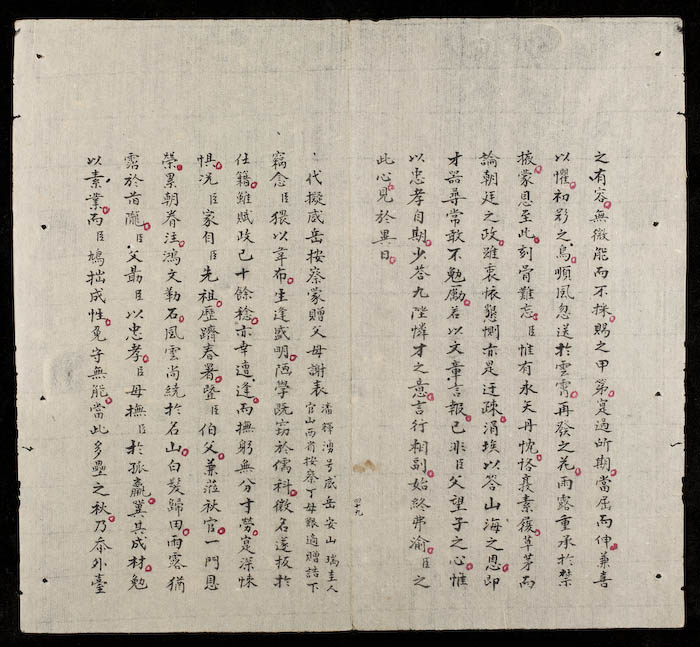 之有容無微能而不採賜之甲第寔過所期當屈而伸兼喜
以懼初影之鳥順風忽送於雲霄再發之花雨露重承於禁
掖蒙恩至此刻骨難忘臣惟有永矢丹忱恪
論朝廷之政雖衷懇惻亦是迂疎涓埃以答山海之恩即
才器尋常敢不勉勵若以文章言報已非臣父望子之心惟
以忠孝自期少答九陛憐才之意言行相副始終弗渝臣之
此心見於異日
四十九
代擬咸岳按察蒙贈父母謝表
潘輝湧号咸岳安山瑞圭人
官山西省按察丁母艱適贈誥下
竊念臣猥以韋布生逢盛明陋學既窃於儒科微名遂扳於
仕籍雖賦政已十餘稔亦幸遭逢而撫躬無分寸勞寔深悚
惧况臣家自臣先祖歷躋春署曁臣伯父兼涖秋官一門恩
榮累朝眷注鴻文勒石風雲尚繞於名山白髮歸田雨露猶
霑於首隴臣父勗臣以忠孝臣母撫臣於孤羸冀其成材勉
以素業而臣鳩拙成性兔守無能當此多壘之秋乃忝外臺